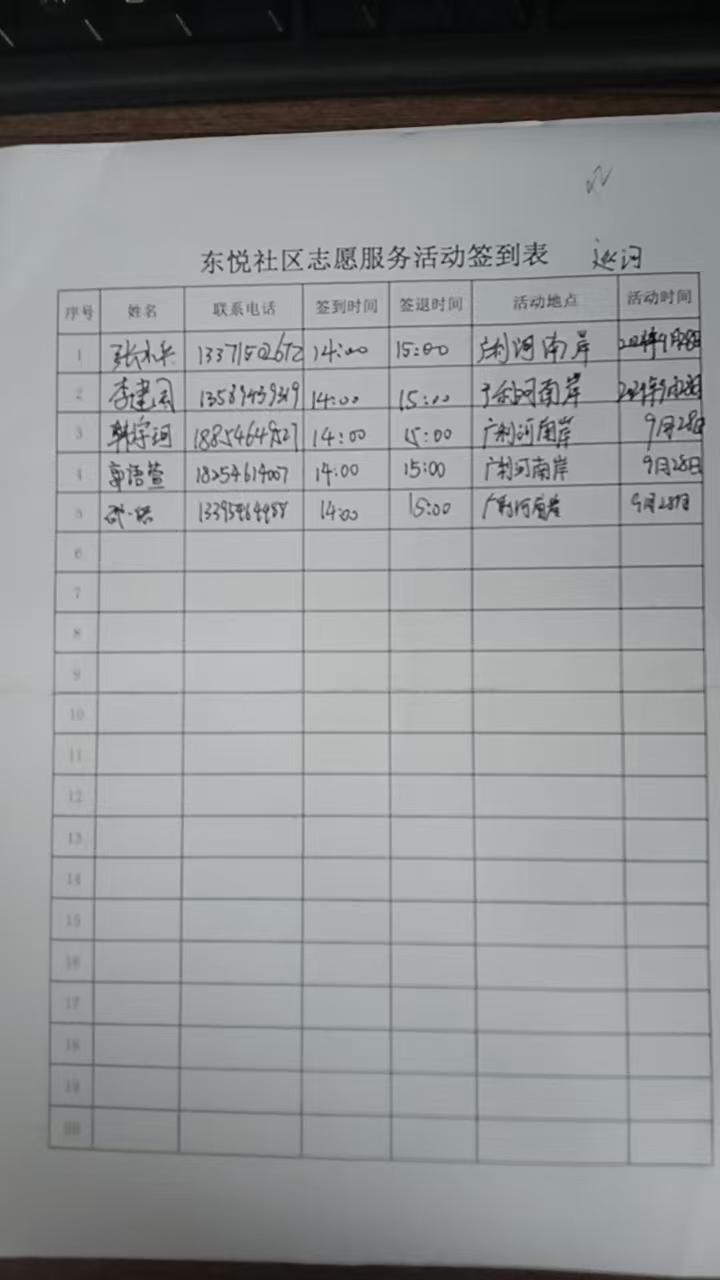 东悦社区志愿服务活动签到表 巡河
序号 姓名 联系电话 签到时间 签退时间 活动地点 活动时间
1 14:00 15:00 广利河南岸
2 李建国 13589459319 14:00 15:00 广利河南岸
3 18854649527 14:00 15:00 广利河南岸 9月28日
4 郭语萱 18254614007 14:00 15:00 广利河南岸 9月28日
5 14:00 15:00 广利河南岸 9月28日
6
7
8
9
10
11
12
13
14
15
16
17
18
19
20